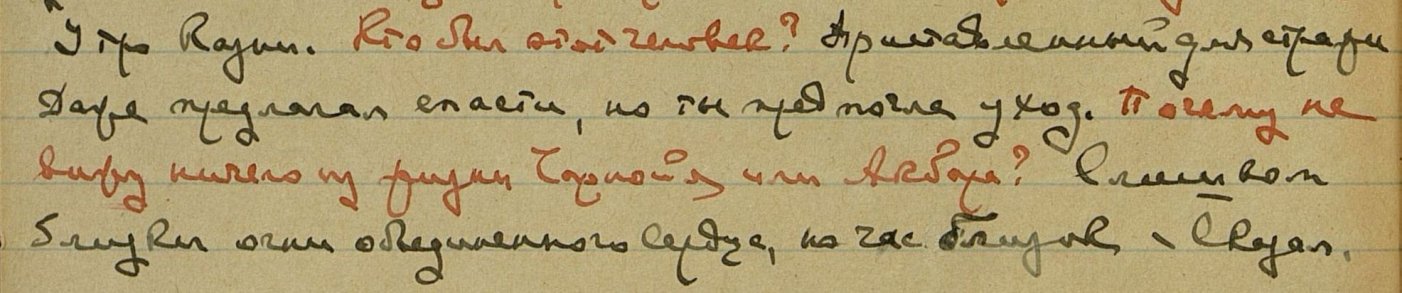 Утро Казни. Кто был этот человек? Приставленный для стражи
Даже предлагал спасти, но ты предпочла уход. Почему не
вижу ничего из жизни Чарнойя или Акбара? Слишком
близки огни объединенного Сердца, но час близок – Сказал.